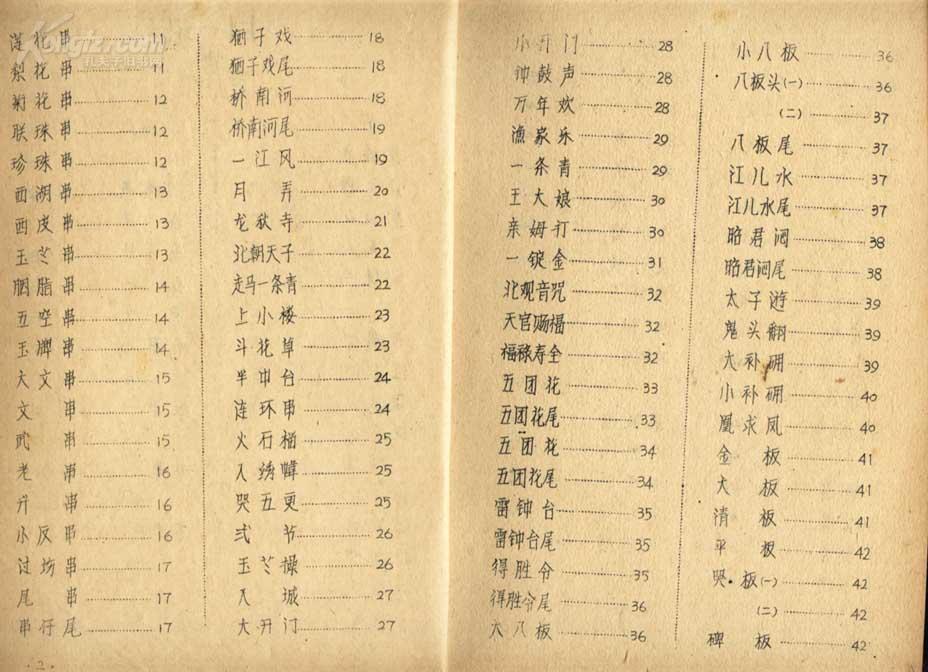 莲花串 11
梨花串 11
菊花串 12
联珠串 12
珍珠串 12
西湖串 13
西皮串 13
玉芝串 13
胭脂串 14
五空串 14
玉牌串 14
大文串 15
文 串 15
武 串 15
老 串 16
升 串 16
小反串 16
过场串 17
尾 串 17
串仔尾 17
·2·
狮子戏 18
狮子戏尾 18
桥南河 18
桥南河尾 19
一江风 19
月 弄 20
龙狱寺 21
北朝天子 22
走马一条青 22
上小楼 23
斗花草 23
半中台 24
连环串 24
火石榴 25
入绣帏 25
哭五更 25
弍 节 26
玉芝操 26
入 城 27
大开门 27
小开门 28
钟鼓声 28
万年欢 28
渔家乐 29
一条青 29
王大娘 30
亲姆打 30
一锭金 31
北观音咒 32
天官赐福 32
福禄寿全 32
五团花 33
五团花尾 33
五团花 34
五团花尾 34
雷钟台 35
雷钟台尾 35
得胜令 35
得胜令尾 36
大八板 36
小八板 36
八板头(一) 36
(二) 37
八板尾 37
江儿水 37
江儿水尾 37
昭君闷 38
昭君闷尾 38
太子遊 39
鬼头翻 39
大补硼 39
小补硼 40
凰求凤 40
金 板 41
大 板 41
清 板 41
平 板 42
哭·板(一) 42
(二) 42
碑 板 42
Kongfz.com
孔夫子旧书网